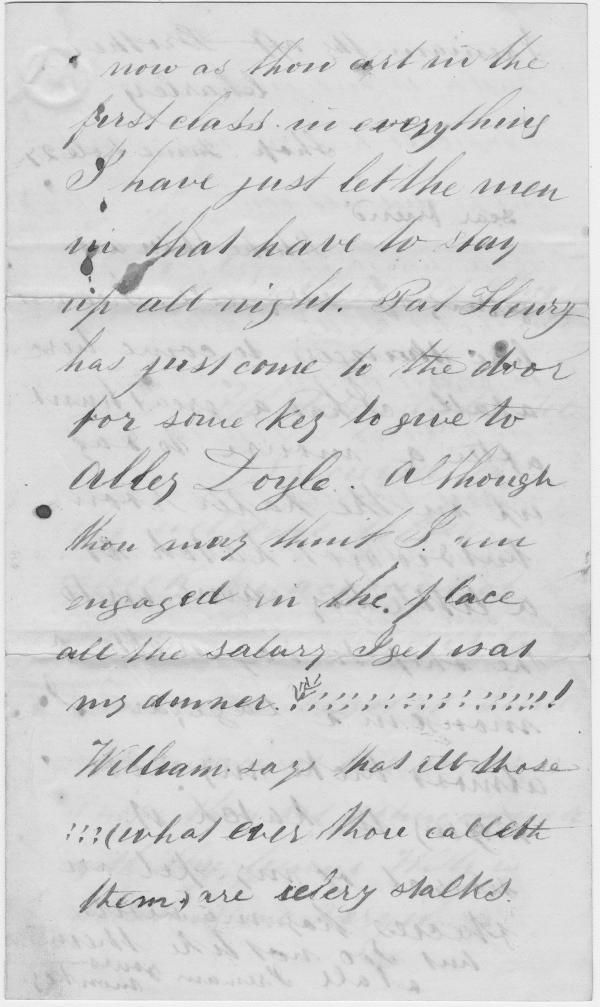 now as thou art in the
first class in everything
I have just let the men
in that have to stay
up all night. Pat Henry
has just come to the door
for some key to give to
Alley Doyle. Although
thou may think I am
engaged in the place
all the salary I get is at
my dinner. !!!!!!!!!!!!!!!!
William says that all those
!!!(what ever thou calleth
them, are celery stalks.